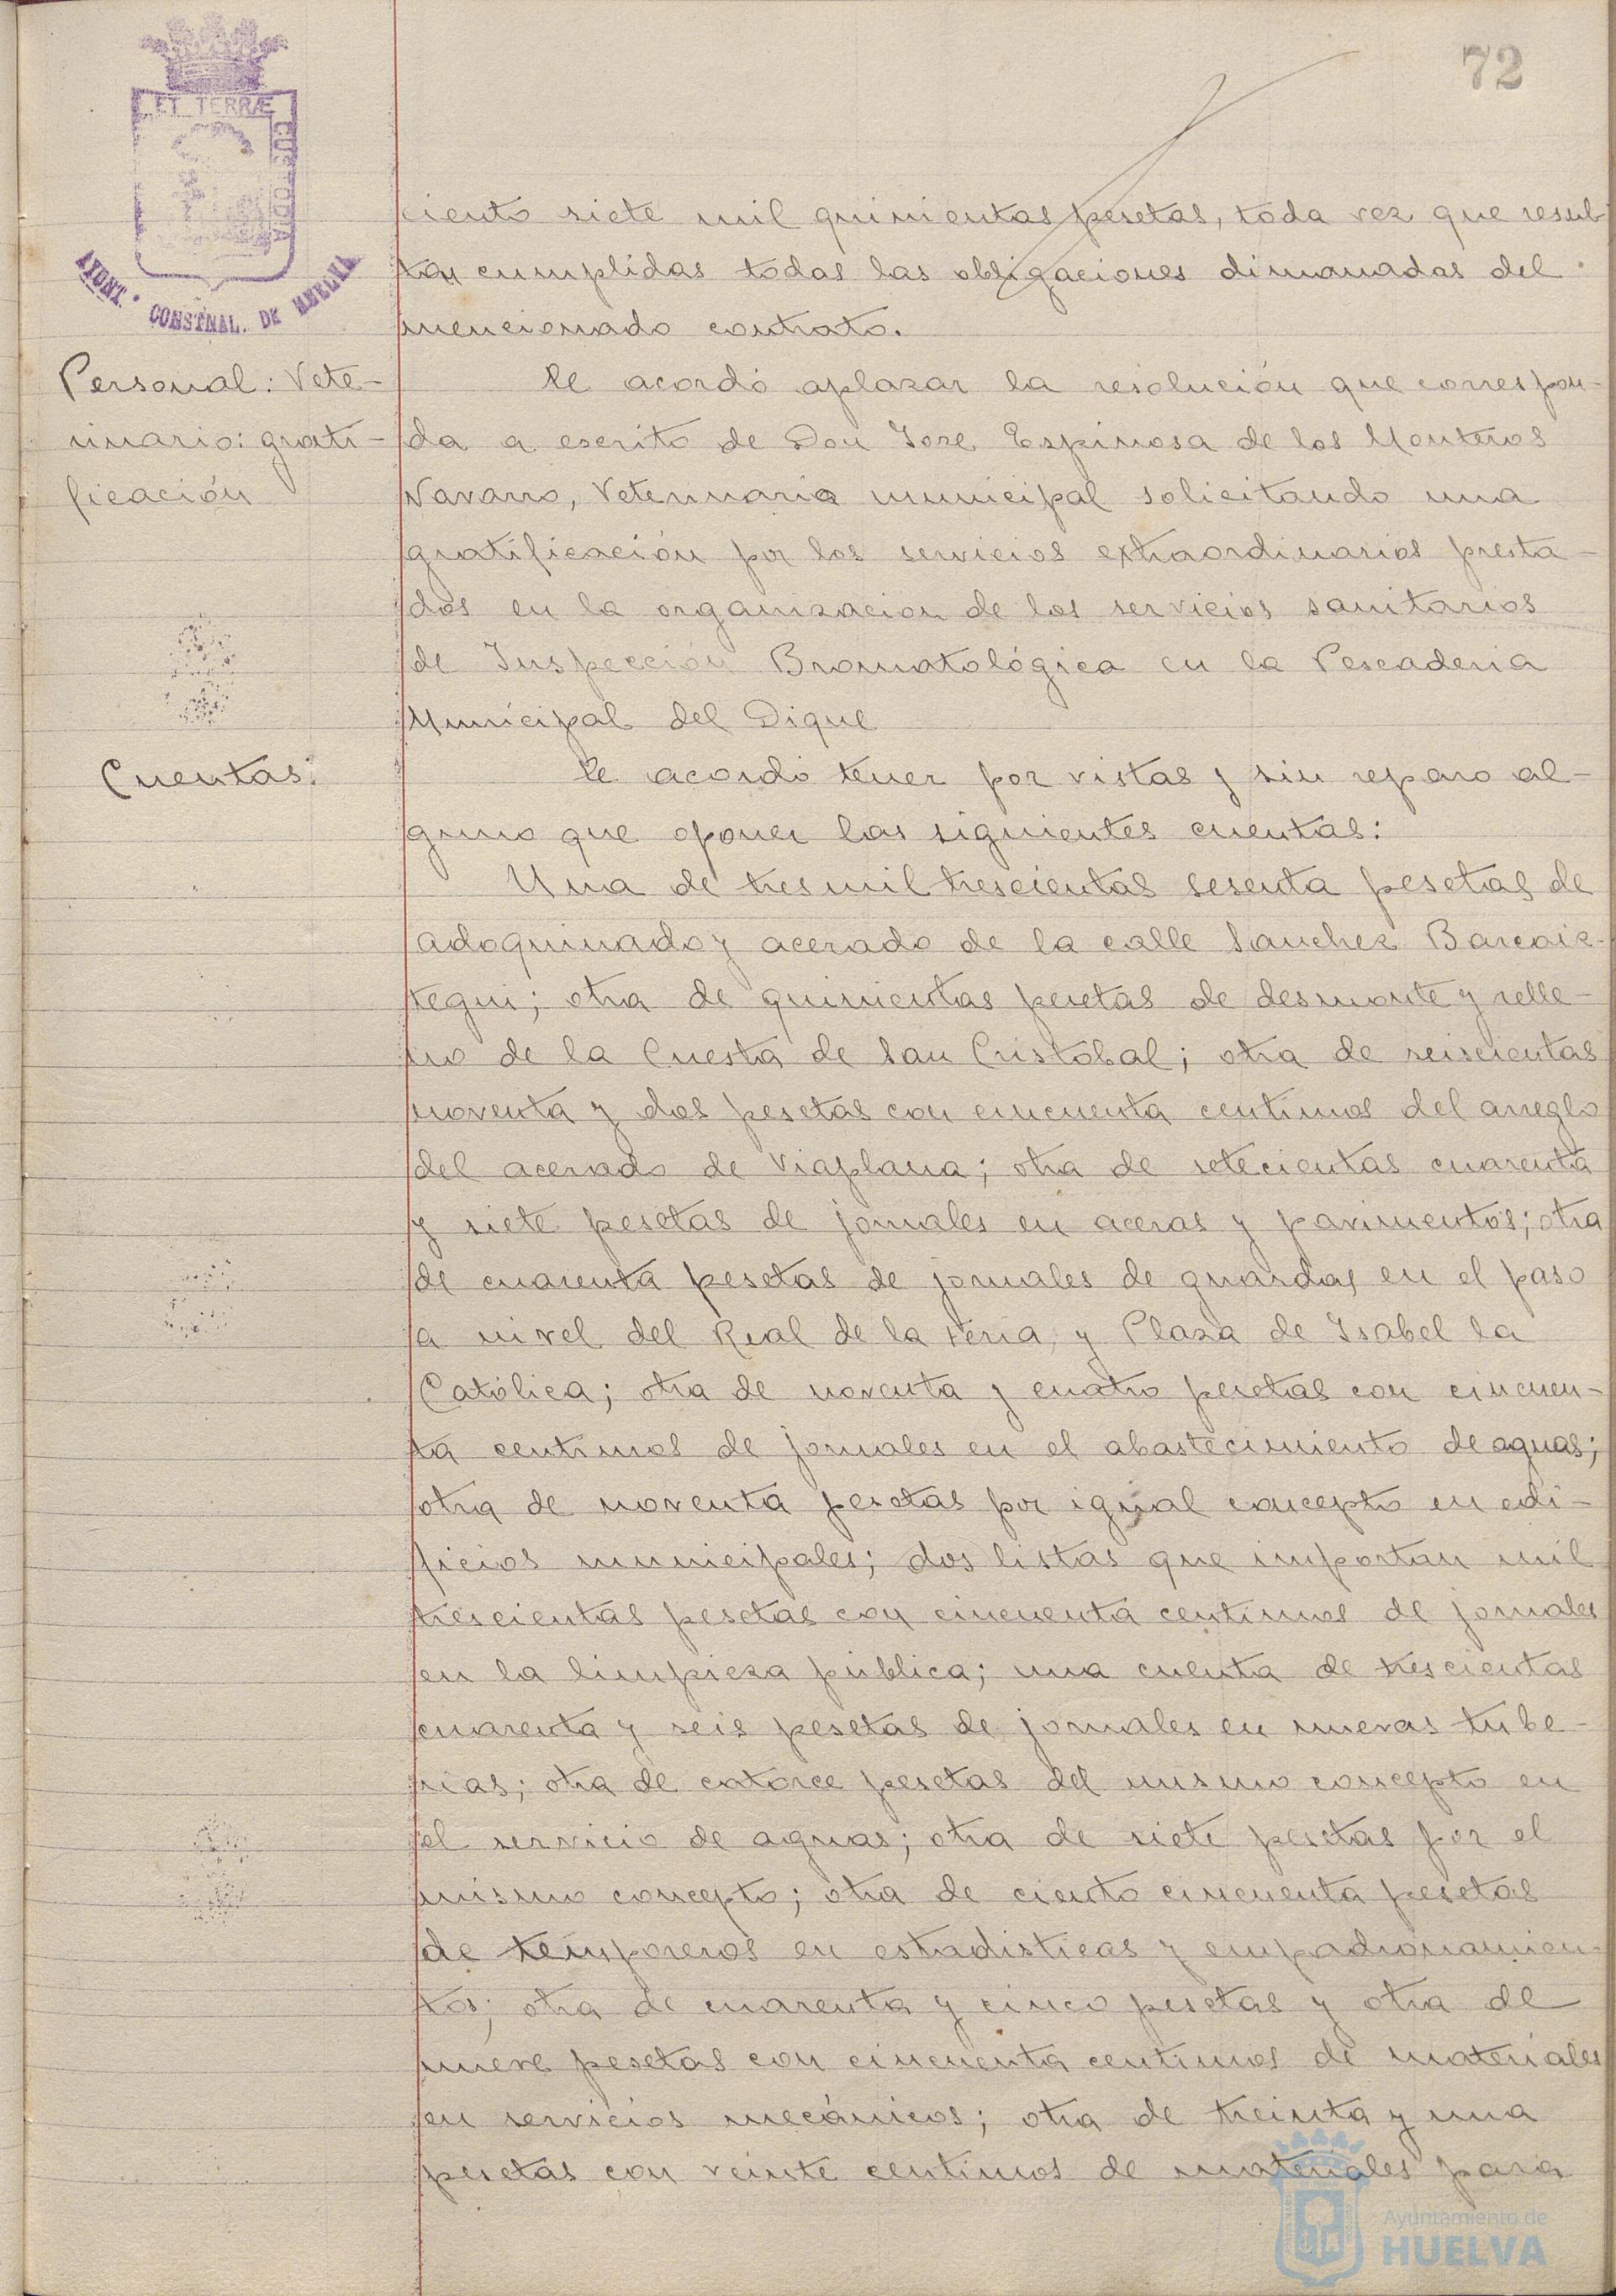 72
ET TERRÆ
CUSTODIA
AYONT. CONSTNAL. DE HUELVA
ciento siete mil quinientas pesetas, toda vez que resul-
tan cumplidas todas las obligaciones dimanadas del
mencionado contrato.
Personal: Vete-
rinario: grati-
ficación
Se acordó aplazar la resolución que correspon-
da a escrito de Don Jose Espinosa de los Monteros
Navarro, Veterinario municipal solicitando una
gratificación por los servicios extraordinarios presta-
dos en la organizacion de los servicios sanitarios
de Inspección Bromatológica en la Pescaderia
Municipal del Dique
Cuentas:
Se acordó tener por vistas y sin reparo al-
guno que oponer las siguientes cuentas:
Una de tres mil trescientas sesenta pesetas de
adoquinado y acerado de la calle Sanchez Barcaiz-
tegui; otra de quinientas pesetas de desmonte y relle-
no de la Cuesta de San Cristóbal; otra de seiscientas
noventa y dos pesetas con cincuenta centimos del arreglo
del acerado de Viaplana; otra de setecientas cuarenta
y siete pesetas de jornales en aceras y pavimentos; otra
de cuarenta pesetas de jornales de guardas en el paso
a nivel del Real de la Feria, y Plaza de Isabel la
Católica; otra de noventa y cuatro pesetas con cincuen-
ta centimos de jornales en el abastecimiento de aguas;
otra de noventa pesetas por igual concepto en edi-
ficios municipales; dos listas que importan mil
trescientas pesetas con cincuenta centimos de jornales
en la limpieza pública; una cuenta de trescientas
cuarenta y seis pesetas de jornales en nuevas tube-
rias; otra de catorce pesetas del mismo concepto en
el servicio de aguas; otra de siete pesetas por el
mismo concepto; otra de ciento cincuenta pesetas
de temporeros en estadisticas y empadronamien-
tos; otra de cuarenta y cinco pesetas y otra de
nueve pesetas con cincuenta centimos de materiales
en servicios mecánicos; otra de treinta y una
pesetas con veinte centimos de materiales para
Ayuntamiento de
HUELVA